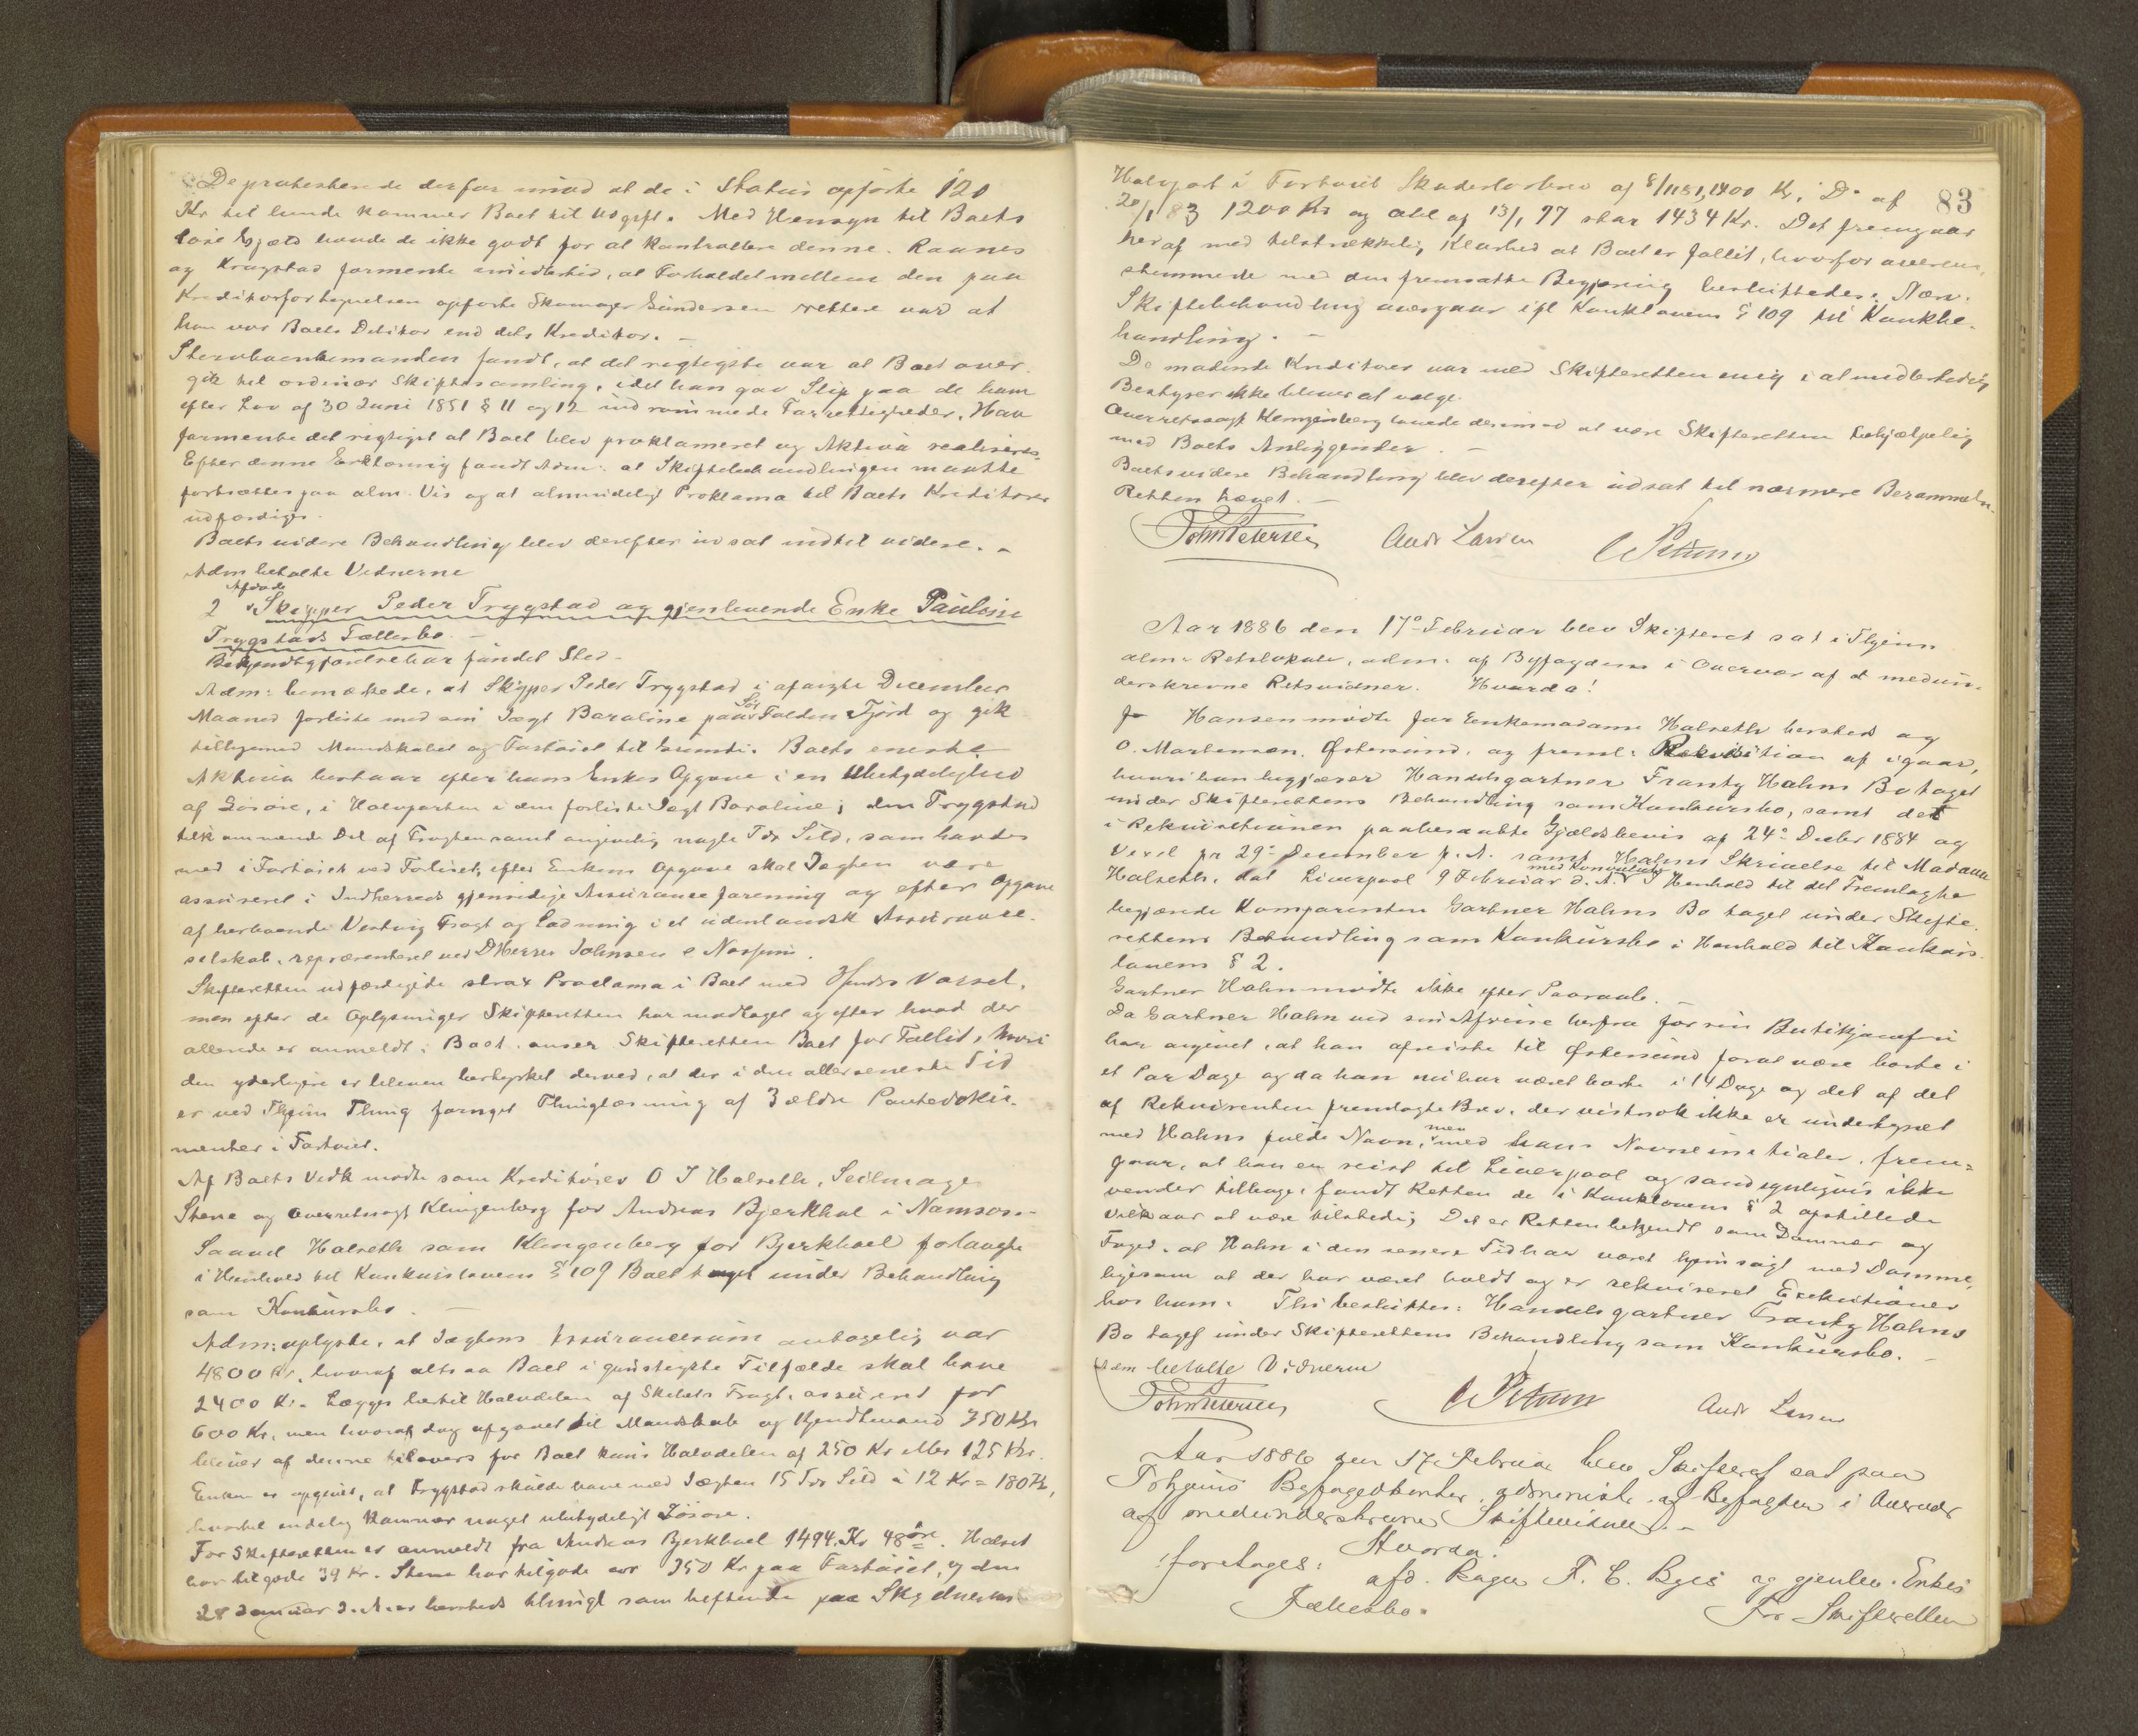 De protesterede derfor imod at de i Status opførte 120
Kr til lunde kommer Boet til Udgift. Med Hensyn til Boets
løse Gjæld havde de ikke godt for at kontrollere denne. Raanes
og Krogstad formente imidlertid, at Forholdet mellem den paa
Kreditorfortegnelsen opførte Skomager Gundersen rettere var at
han var Boets Debitor end dets Kreditor. -
Stervboenkemanden fandt, at det rigtigste var at Boet over-
gik til ordinær Skiftesamling, idet han gav Slip paa de ham
efter Lov af 30 Juni 1851 § 11 og 12 indrømmede Farrettigheder. Han
formente det rigtigst at Boet blev proklameret og Aktiva realiseres.
Efter denne Erklæring fandt Adm: at Skiftebehandlingen maatte
fortsættes paa alm. Vis og at almindeligt Proklama til Boets Kreditorer
udfærdiges.
Boets videre Behandling blev derefter udsat indtil videre. -
Adm betalte Vidnerne
2 Afdøde Skipper Peder Trygstad og gjenlevende Enke Pauline
Trygstads Fællesbo. -
Bekjendtgjørelse har fundet Sted -
Adm: bemærkede, at Skipper Peder Trygstad i afvigte December
Maaned forliste med sin Jægt Baroline paa Folden Fjord og gik
tilligemed Mandskabet og Fartøiet tilgrunde. Boets eneste
Aktiva bestaar efter hans Enkes Opgave i en Ubetydelighed
af Løsøre, i Halvparten i den forliste Jægt Baroline; den Trygstad
tilkommende Del af Fragten samt angivelig nogle Tdr Sild, som havdes
med i Fartøiet ved Forliset, efter Enkens Opgave skal Jægten være
assureret i Indherreds gjensidige Assuranceforening og efter Opgave
af herboende Vestvig Fragt og Ladning i et udenlandsk Assurance-
selskab, repræsenteret ved DHerrer Johnsen &
Skifteretten udfærdigede strax Proclama i Boet med Varsel,
men efter de Oplysninger Skifteretten har modtaget og efter hvad der
allerede er anmeldt i Boet, anser Skifteretten Boet for Fallit, hvori
den yderligere er bleven bestyrket derved, at der i den allerseneste Tid
er ved Thjem Thing foregaaet Thinglæsning af 3 ældre Pantedoku-
menter i Fartøiet.
Af Boets Vedk mødte som Kreditorer O J Halseth, Seilmager
Stene og Overretssagf Klingenberg for Andreas Bjerkhoel i Namsos.-
Saavel Halseth som Klingenberg for Bjerkhoel forlangte
i Henhold til Konkurslovens § 109 Boet taget under Behandling
som Konkursbo. -
Adm: oplyste, at Jægtens Assurancesum antagelig var
4800 Kr., hvoraf altsaa Boet i gunstigste Tilfælde skal have
2400 Kr. Lægges hertil Halvdelen af Skibets Fragt, assureret for
600 Kr, men hvoraf dog afgaaet til Mandskab og Kjendtmand 350 Kr
bliver af denne tilovers for Boet kuns Halvdelen af 250 Kr eller 125 Kr.
Enken er opgivet, at Trygstad skulde have med Jægten 15 Tdr Sild à 12 Kr = 180 Kr,
hvortil endelig kommer noget ubetydeligt Løsøre.
For Skifteretten er anmeldt fra Andreas Bjerkhoel 1494 Kr 48 øre. Halset
har tilgode 39 Kr. Stene har tilgode 350 Kr paa Fartøiet, og den
28 Januar d. A. er hersteds thinglt som heftende paa
83
Halvpart i Fartøiet Skadesløsbrev af 8/11 81, 1400 Kr, Do af
20/1 83 1200 Kr og Obl af 13/1 77 stor 1434 Kr. Det fremgaar
heraf med tilstrækkelig Klarhed at Boet er fallit, hvorfor overens-
stemmende med den fremsatte Begjæring besluttedes: Nærv.
Skiftebehandling overgaar ifl Konklovens § 109 til Konkbe-
handling. -
De mødende Kreditorer var med Skifteretten enig i at midlertidig
Bestyrer ikke bliver at vælge.
Overretssagf Klingenberg lovede derimod at være Skifteretten behjælpelig
med Boets Anliggender. -
Boets videre Behandling blev derefter udsat til nærmere Berammelse.
Retten hævet. -
John Petersen Andr Larsen
Aar 1886 den 17de Februar blev Skifteret sat i Thjems
alm: Retslokale, adm: af Byfogden i Overvær af de medun-
derskrevne Retsvidner. Hvorda!
Hansen mødte for Enkemadame Halseth hersteds og
O. Martinsen. Østersund. og freml: Rekvisition af igaar,
hvori han begjærer Handelsgartner Frantz Hahns Bo taget
under Skifterettens Behandling som Konkursbo, samt det
i Rekvisitionen paaberaabte Gjældsbevis af 24de Decbr 1884 og
Vexel pr 29de December f. A. samt Hahns Skrivelse til Madam
Halseth, dat Liverpool 9 Februar d. A. med Konvolut. I Henhold til det Fremlagte
begjærede Komparenten Gartner Hahns Bo taget under Skifte-
rettens Behandling som Konkursbo i Henhold til Konkurs-
lovens § 2.
Gartner Hahn mødte ikke efter Paaraab. -
Da Gartner Hahn ved sin Afreise herfra for sin Butikjomfru
har angivet, at han afreiste til Østersund for at være borte i
et Par Dage og da han nu har været borte i 14 Dage og det af det
af Rekvirenten fremlagte Brev, der vistnok ikke er undertegnet
med Hahns fulde Navn, men med hans Navneinitialer, frem-
gaar, at han er reist til Liverpool og sandsynligvis ikke
vender tilbage, fandt Retten de i Konklovens § 2 opstillede
Vilkaar at være tilstede; Det er Retten bekjendt som Dommer og
Foged, at Hahn i den senere Tid har været hjemsøgt med Domme,
ligesom at der har været holdt og er rekvireret Exekutioner
hos ham. Thi besluttes: Handelsgartner Frantz Hahns
Bo tages under Skifterettens Behandling som Konkursbo. -
Adm betalte Vidnerne
John Petersen Andr Larsen
Aar 1886 den 17 Februar blev Skifteret sat paa
Byfogedkontor, administr. af Byfogden i Overvær
af medunderskrevne Skiftevidner. -
Hvorda.
foretages: afd. Bager F. C. Byes og gjenlev. Enkes
Fællesbo. For Skifteretten